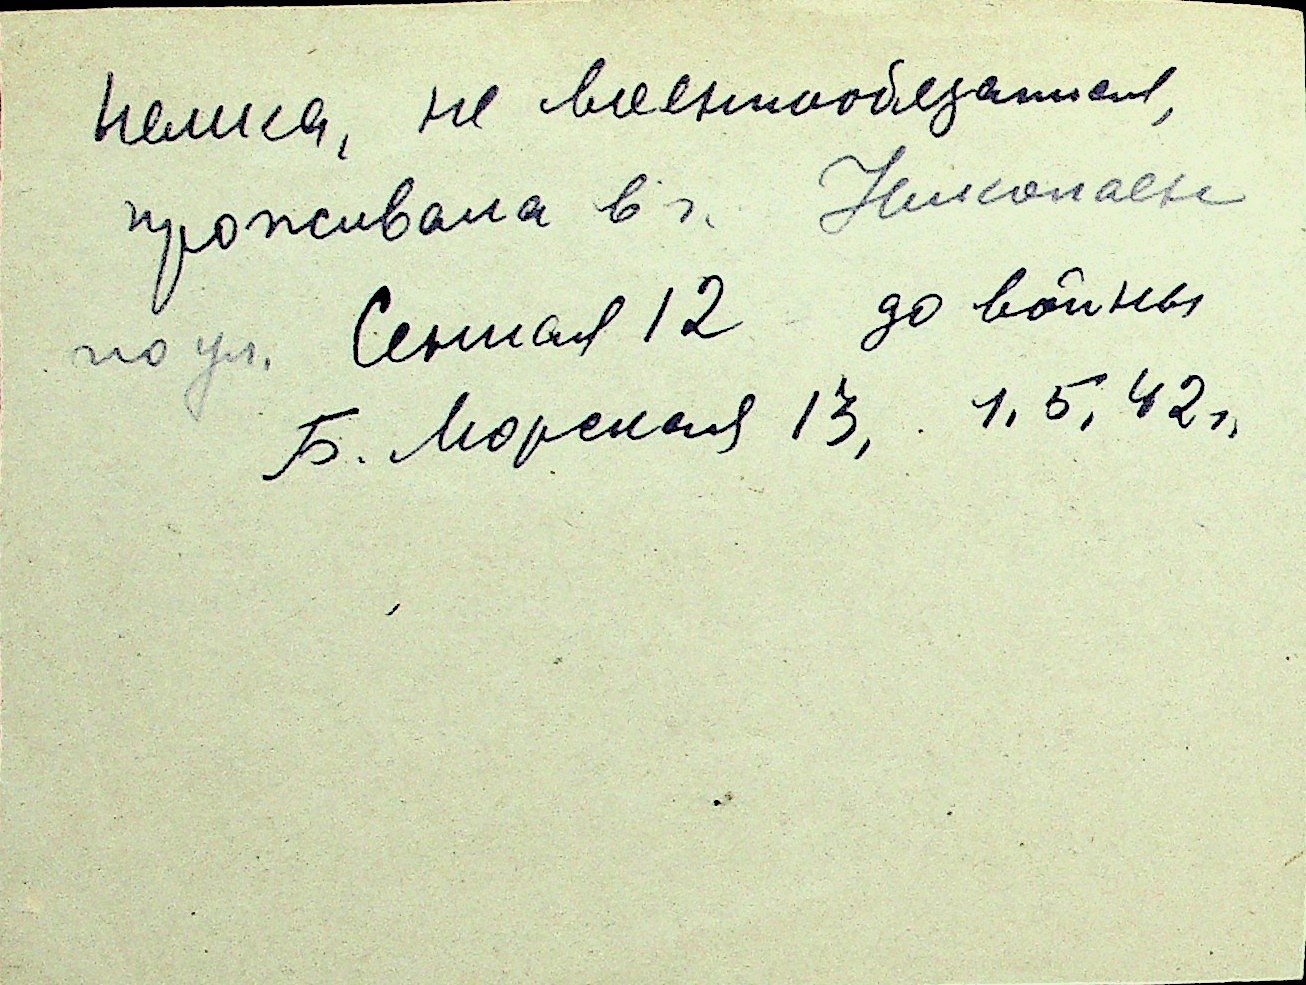 немка, не военнообязаная,
проживала в г. Николаев
по ул. Сенная 12 до войны
Б. Морская 13, 1.5.42 г.